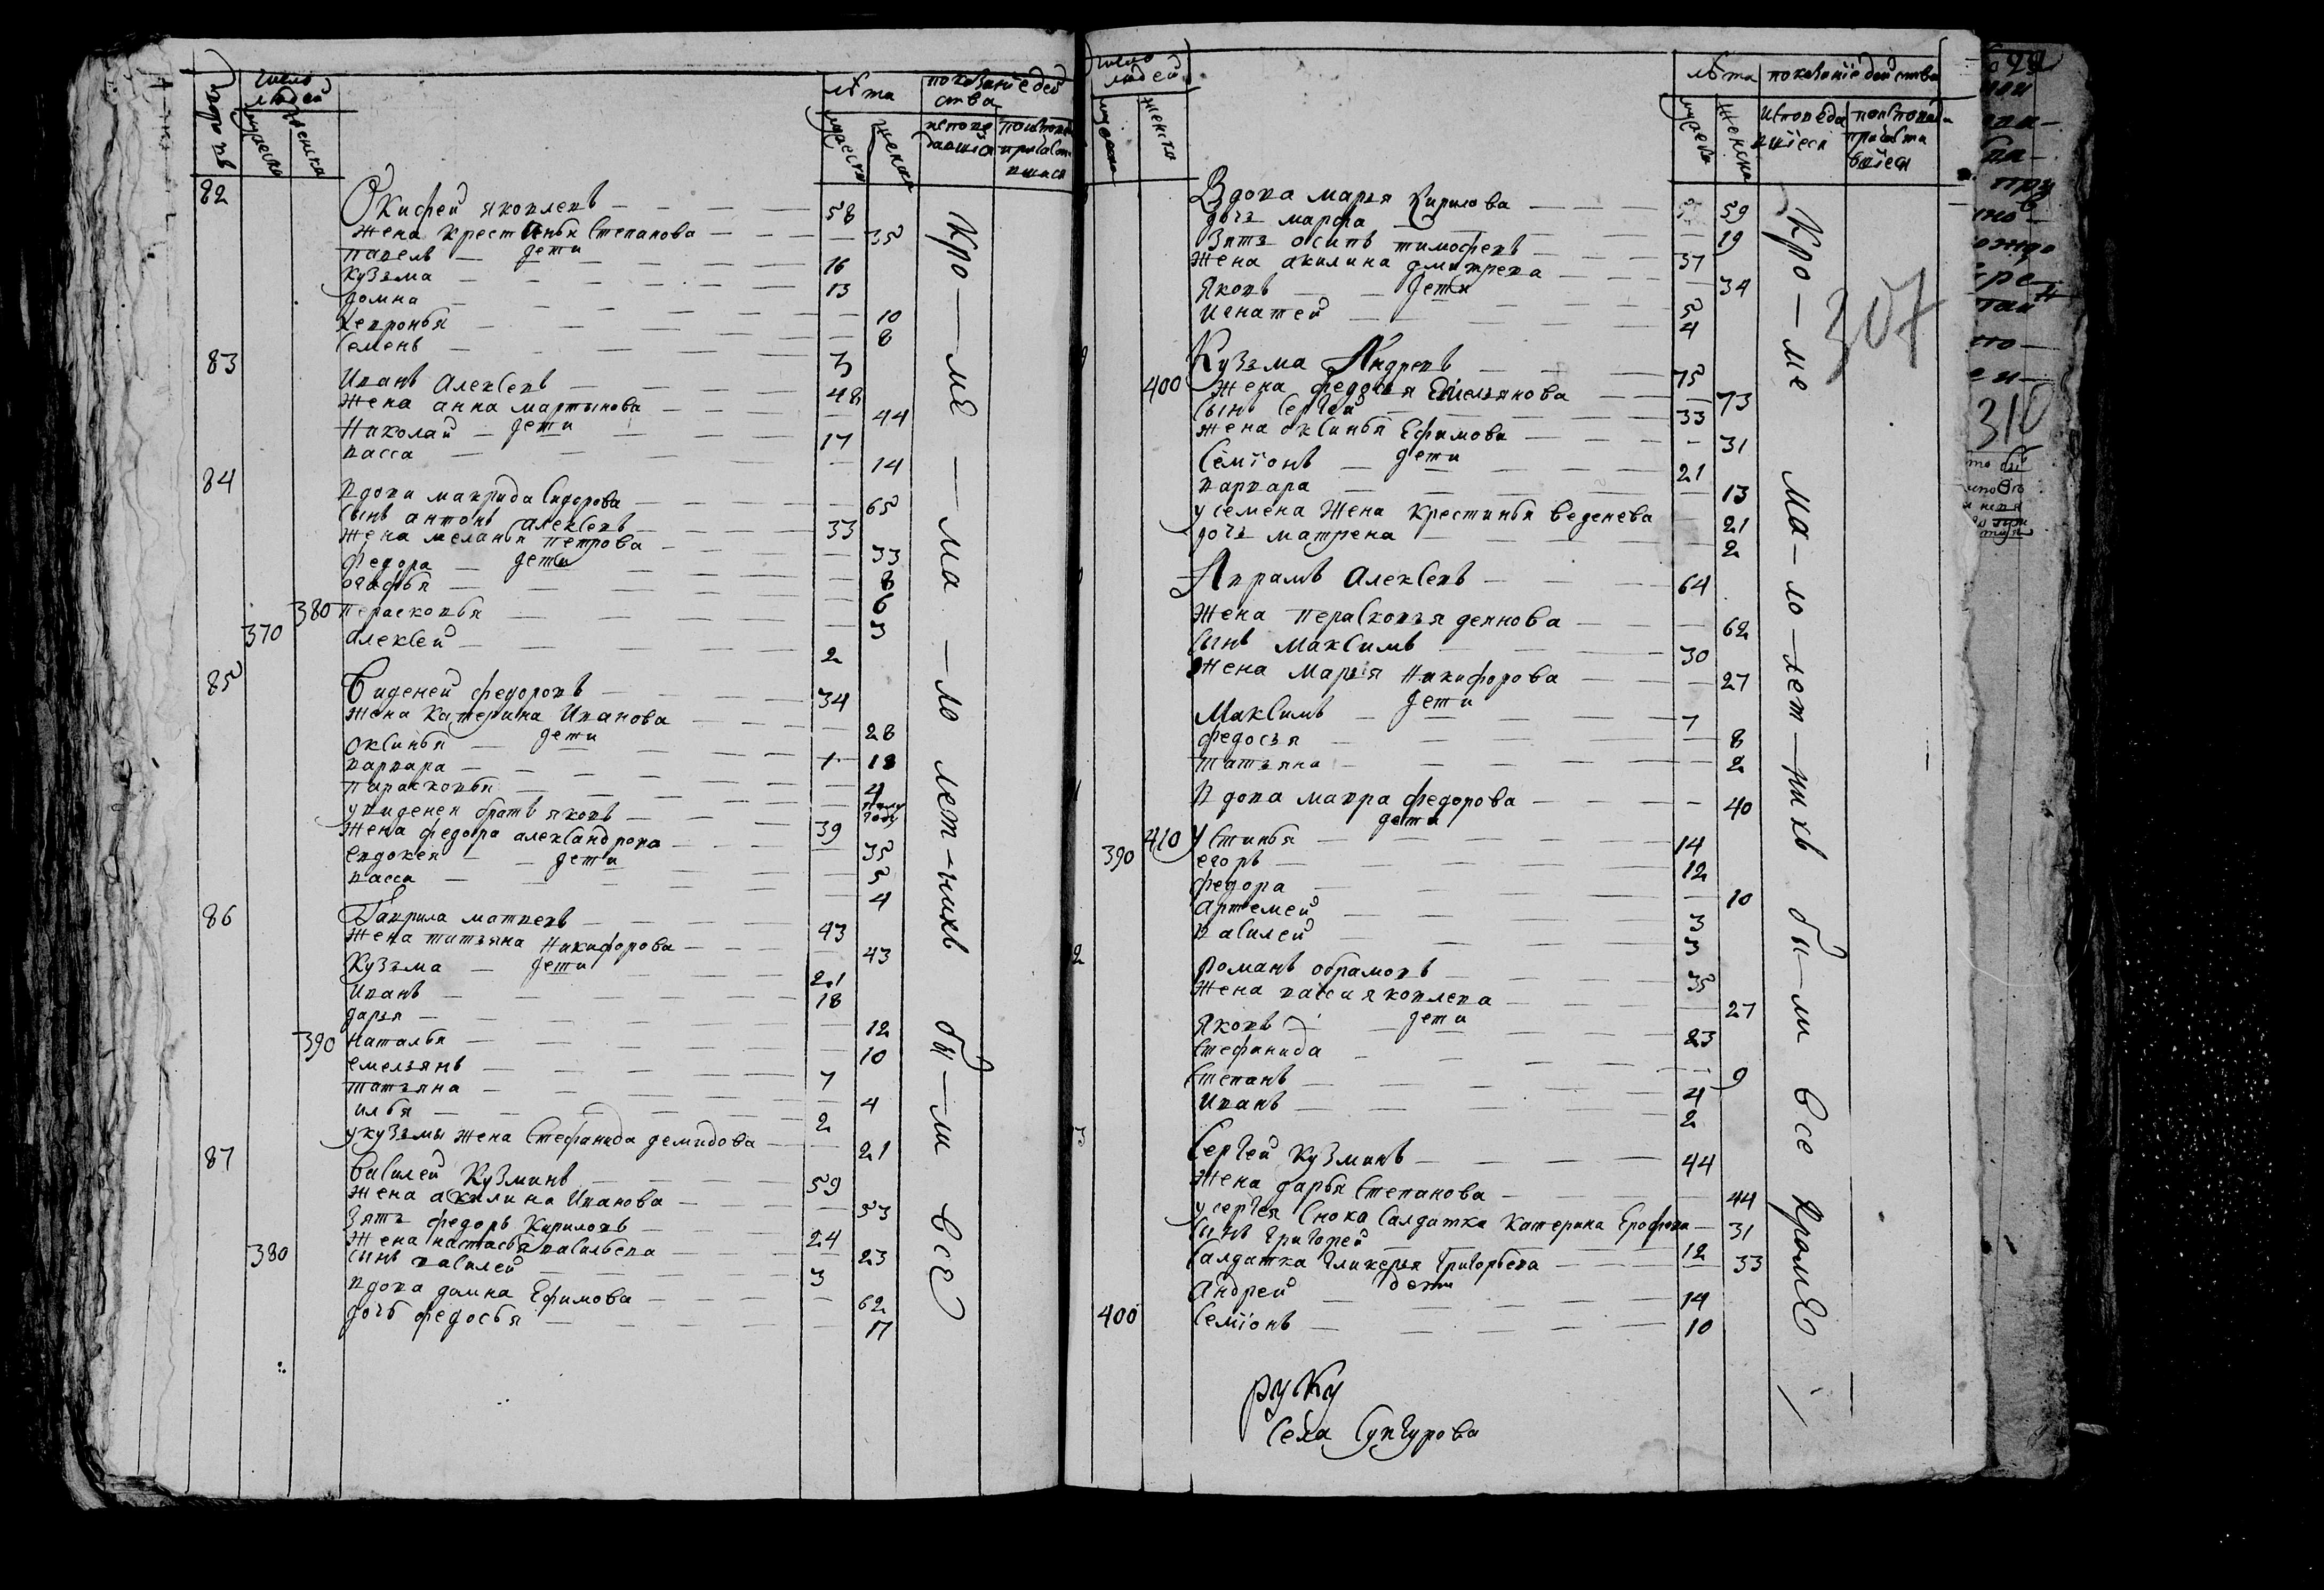 число людей
лѣта
показание действа
мужеска
женска
82
Окифей яковлевъ 58
жена крестинья Степанова 35
дети
павелъ 16
кузьма 13
домна 10
хевронья 8
Семенъ 3
83
Иванъ Алексевъ 48
жена анна мартынова 44
дети
Николай 17
васса 14
84
вдова маврида Сидорова 65
Сынъ антонъ алексевъ 33
жена меланья петрова 33
дети
федора 8
огафья 6
380 перасковья 3
370 алексей 2
85
виденей федоровъ 34
жена Катерина Иванова 28
дети
оксинья 18
варвара 4
парасковья полу году
у виденея братъ яковъ 39
жена федора александрова 35
дети
евдокея 5
васса 4
86
Гаврила матвевъ 43
жена татьяна Никифорова 43
дети
Кузьма 21
Иванъ 18
дарья 12
390 наталья 10
емельянъ 7
татьяна 4
илья 2
у кузьмы жена Стефанида демидова 21
87
василей Кузминъ 59
жена акилина Иванова 53
зять федоръ Кириловъ 24
жена настасья васильева 23
380 сынъ василей 3
вдова домна Ефимова 62
дочь федосья 17
Кро — ме — ма — ло лет — нихъ бы — ли все
число людей
лѣта
показание действа
мужеска
женска
307
Вдова марья Кирилова 59
дочь марфа 19
Зять осипъ тимофевъ 37
жена акилина дмитрева 34
дети
Яковъ 5
Игнатей 4
Кузьма Андревъ 75
400 жена федосья Емельянова 73
Сынъ Сергей 33
жена оксинья Ефимова 31
дети
Семионъ 21
варвара 13
у семена жена крестинья веденева 21
дочь матрена 2
Аврамъ Алексевъ 64
жена перасковья деянова 62
Сынъ Максимъ 30
жена Марья Никифорова 27
дети
Максимъ 7
федосья 8
татьяна 2
вдова мавра федорова 40
дети
410 устинья 14
390 егоръ 12
федора 10
артемей 3
василей 3
романъ обрамовъ 35
жена васса яковлева 27
дети
яковъ 23
Стефанида 9
Степанъ 4
Иванъ 2
Сергей Кузминъ 44
жена дарья Степанова 44
у сергея Сноха Салдатка Катерина Ерофева 31
Сынъ Григорей 12
Салдатка Гликерья Григорьева 33
дети
Андрей 14
400 Семионъ 10
Кро — ме ма — ло — лет — нихъ бы — ли все кроме
руку
Села Сунгурова
310